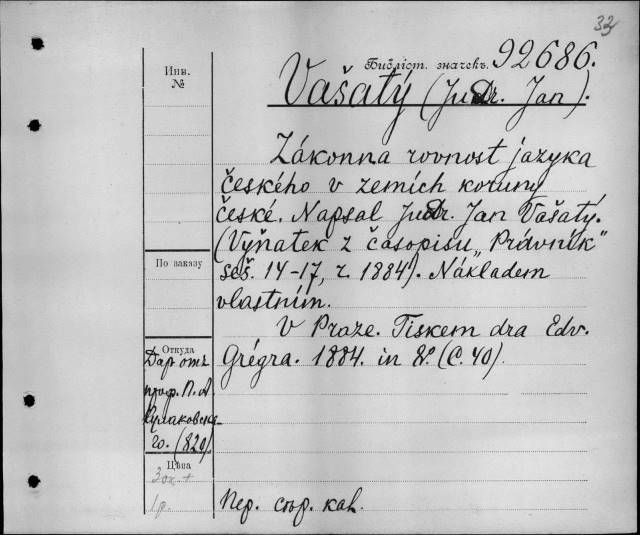 33
Библіот. значекъ. 92686.
Инв.
№
Vašatý (JuDr. Jan).
Zákonna rovnost jazyka
českého v zemích koruny
české. Napsal JuDr. Jan Vašatý.
(Výňatek z časopisu „Právník“
seš. 14-17, r. 1884). Nákladem
vlastním.
V Praze. Tiskem dra Edv.
Grégra. 1884. in 8º. (C. 40).
По заказу
Откуда
Даръ отъ
проф. П. А.
Кулаковска-
го. (820).
Цѣна
1 р.
Пер. стр.